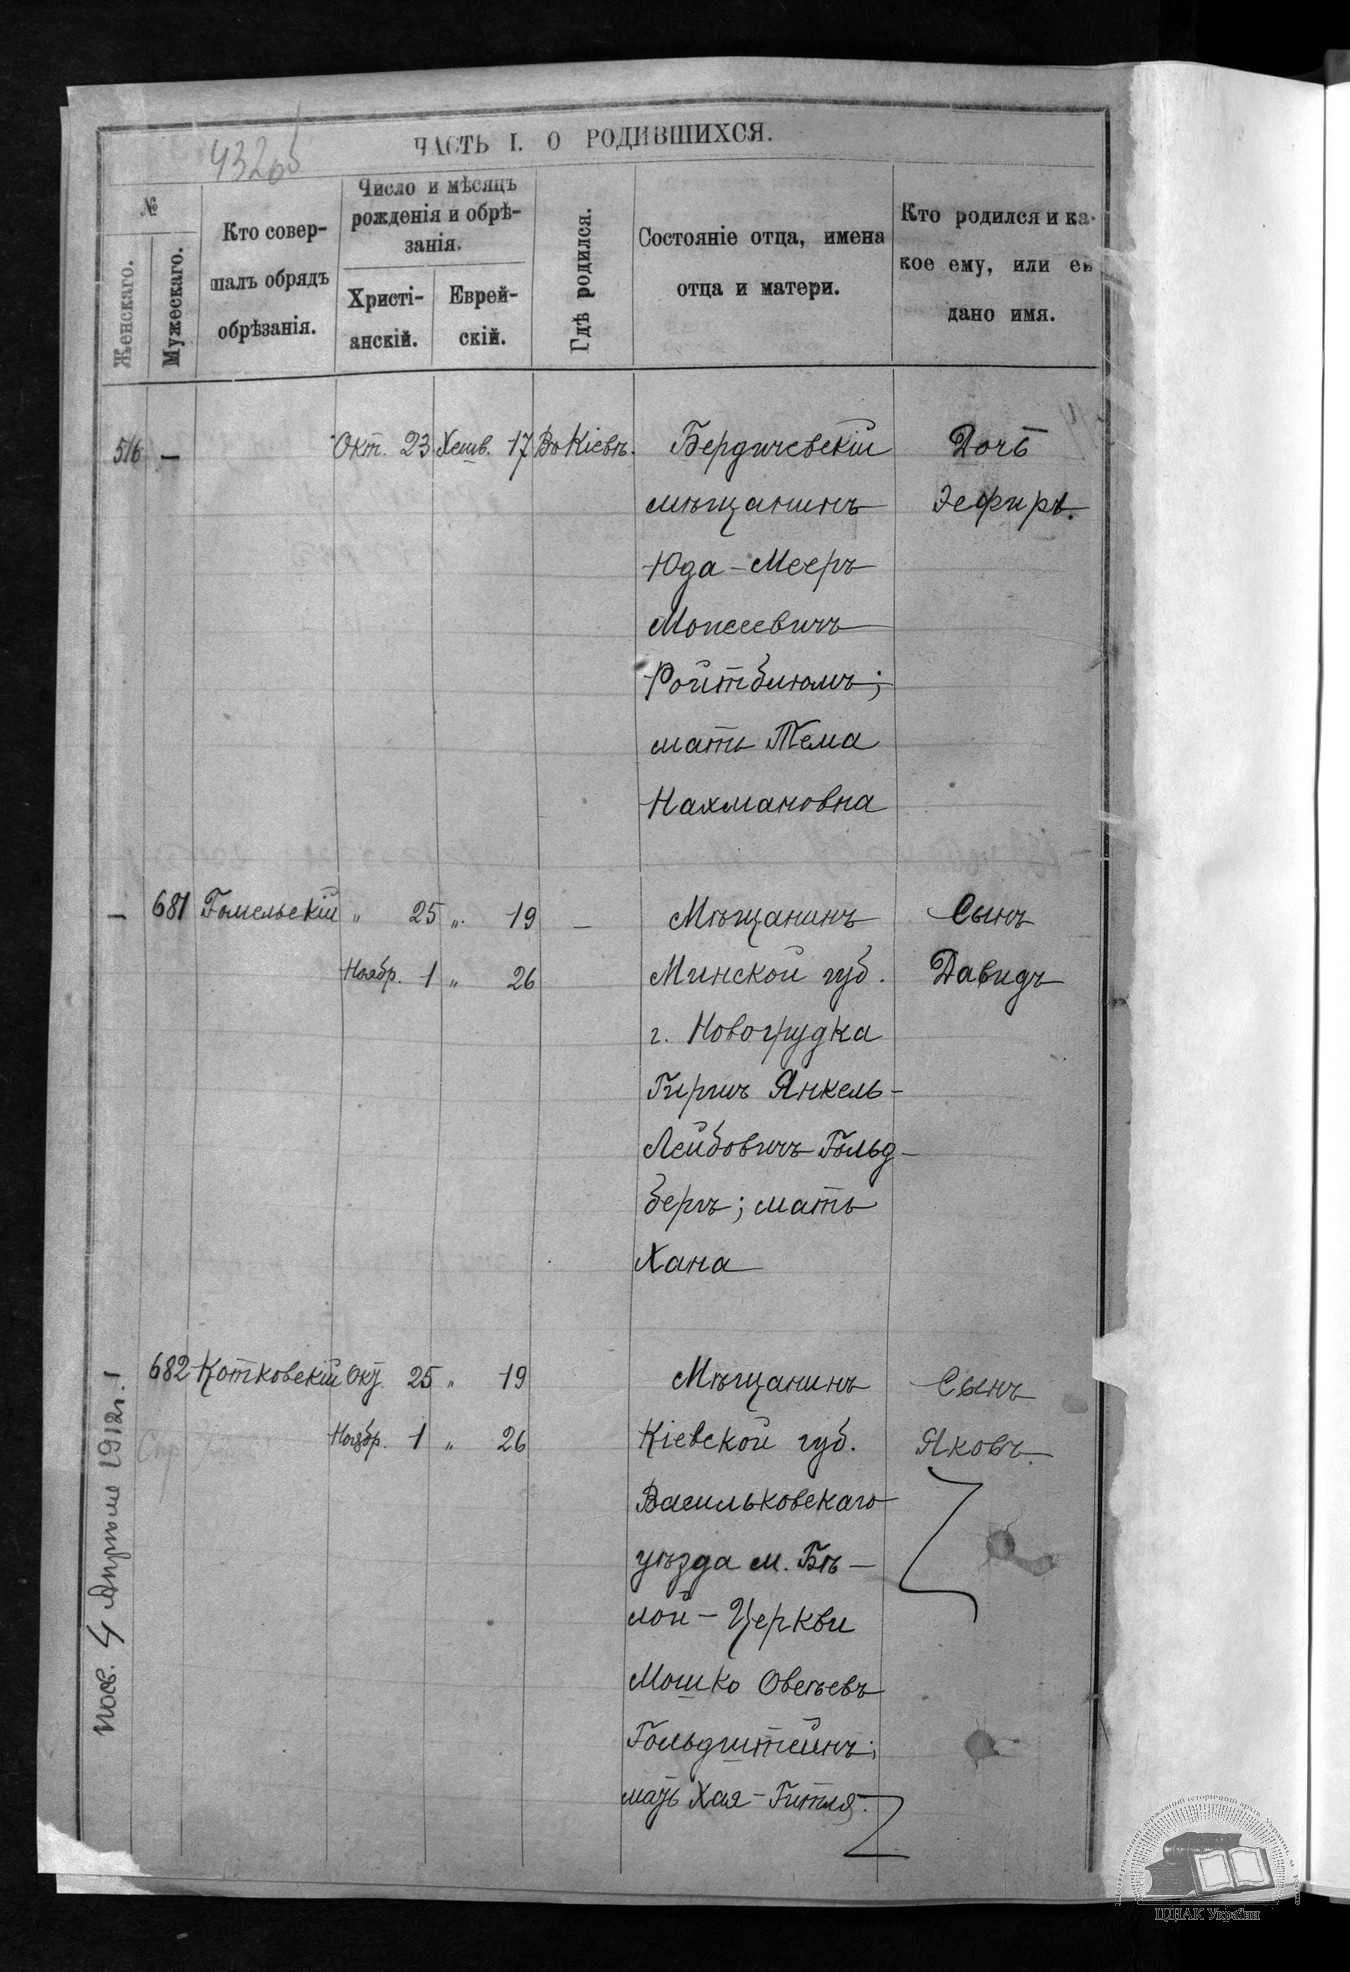 ЧАСТЬ I. О РОДИВШИХСЯ.
№
Женскаго.
Мужескаго.
Кто совер-
шалъ обрядъ
обрѣзанія.
Число и мѣсяцъ
рожденія и обрѣ-
занія.
Христі-
анскій.
Еврей-
скій.
Гдѣ родился.
Состояніе отца, имена
отца и матери.
Кто родился и ка-
кое ему, или ей
дано имя.
516 — Окт. 23 Хешв. 17 Въ Кіевѣ. Бердичевскій Дочь
мѣщанинъ Эсфирь.
Юда-Мееръ
Моисеевичъ
Ройтблюмъ;
мать Тема
Нахмановна
— 681 Гомельскій " 25 " 19 — Мѣщанинъ Сынъ
Ноябр. 1 " 26 Минской губ. Давидъ
г. Новогрудка
Гиршъ Янкель-
Лейбовичъ Гольд-
бергъ; мать
Хана
682 Котковскій Окт. 25 " 19 Мѣщанинъ Сынъ
Ноябр. 1 " 26 Кіевской губ. Яковъ.
Васильковскаго
уѣзда м. Бѣ-
лой-Церкви
Мошко Овсеевъ
Гольдштейнъ;
мать Хая-Гитля.
4 Апрѣля 1912г.
ЦДІАК України